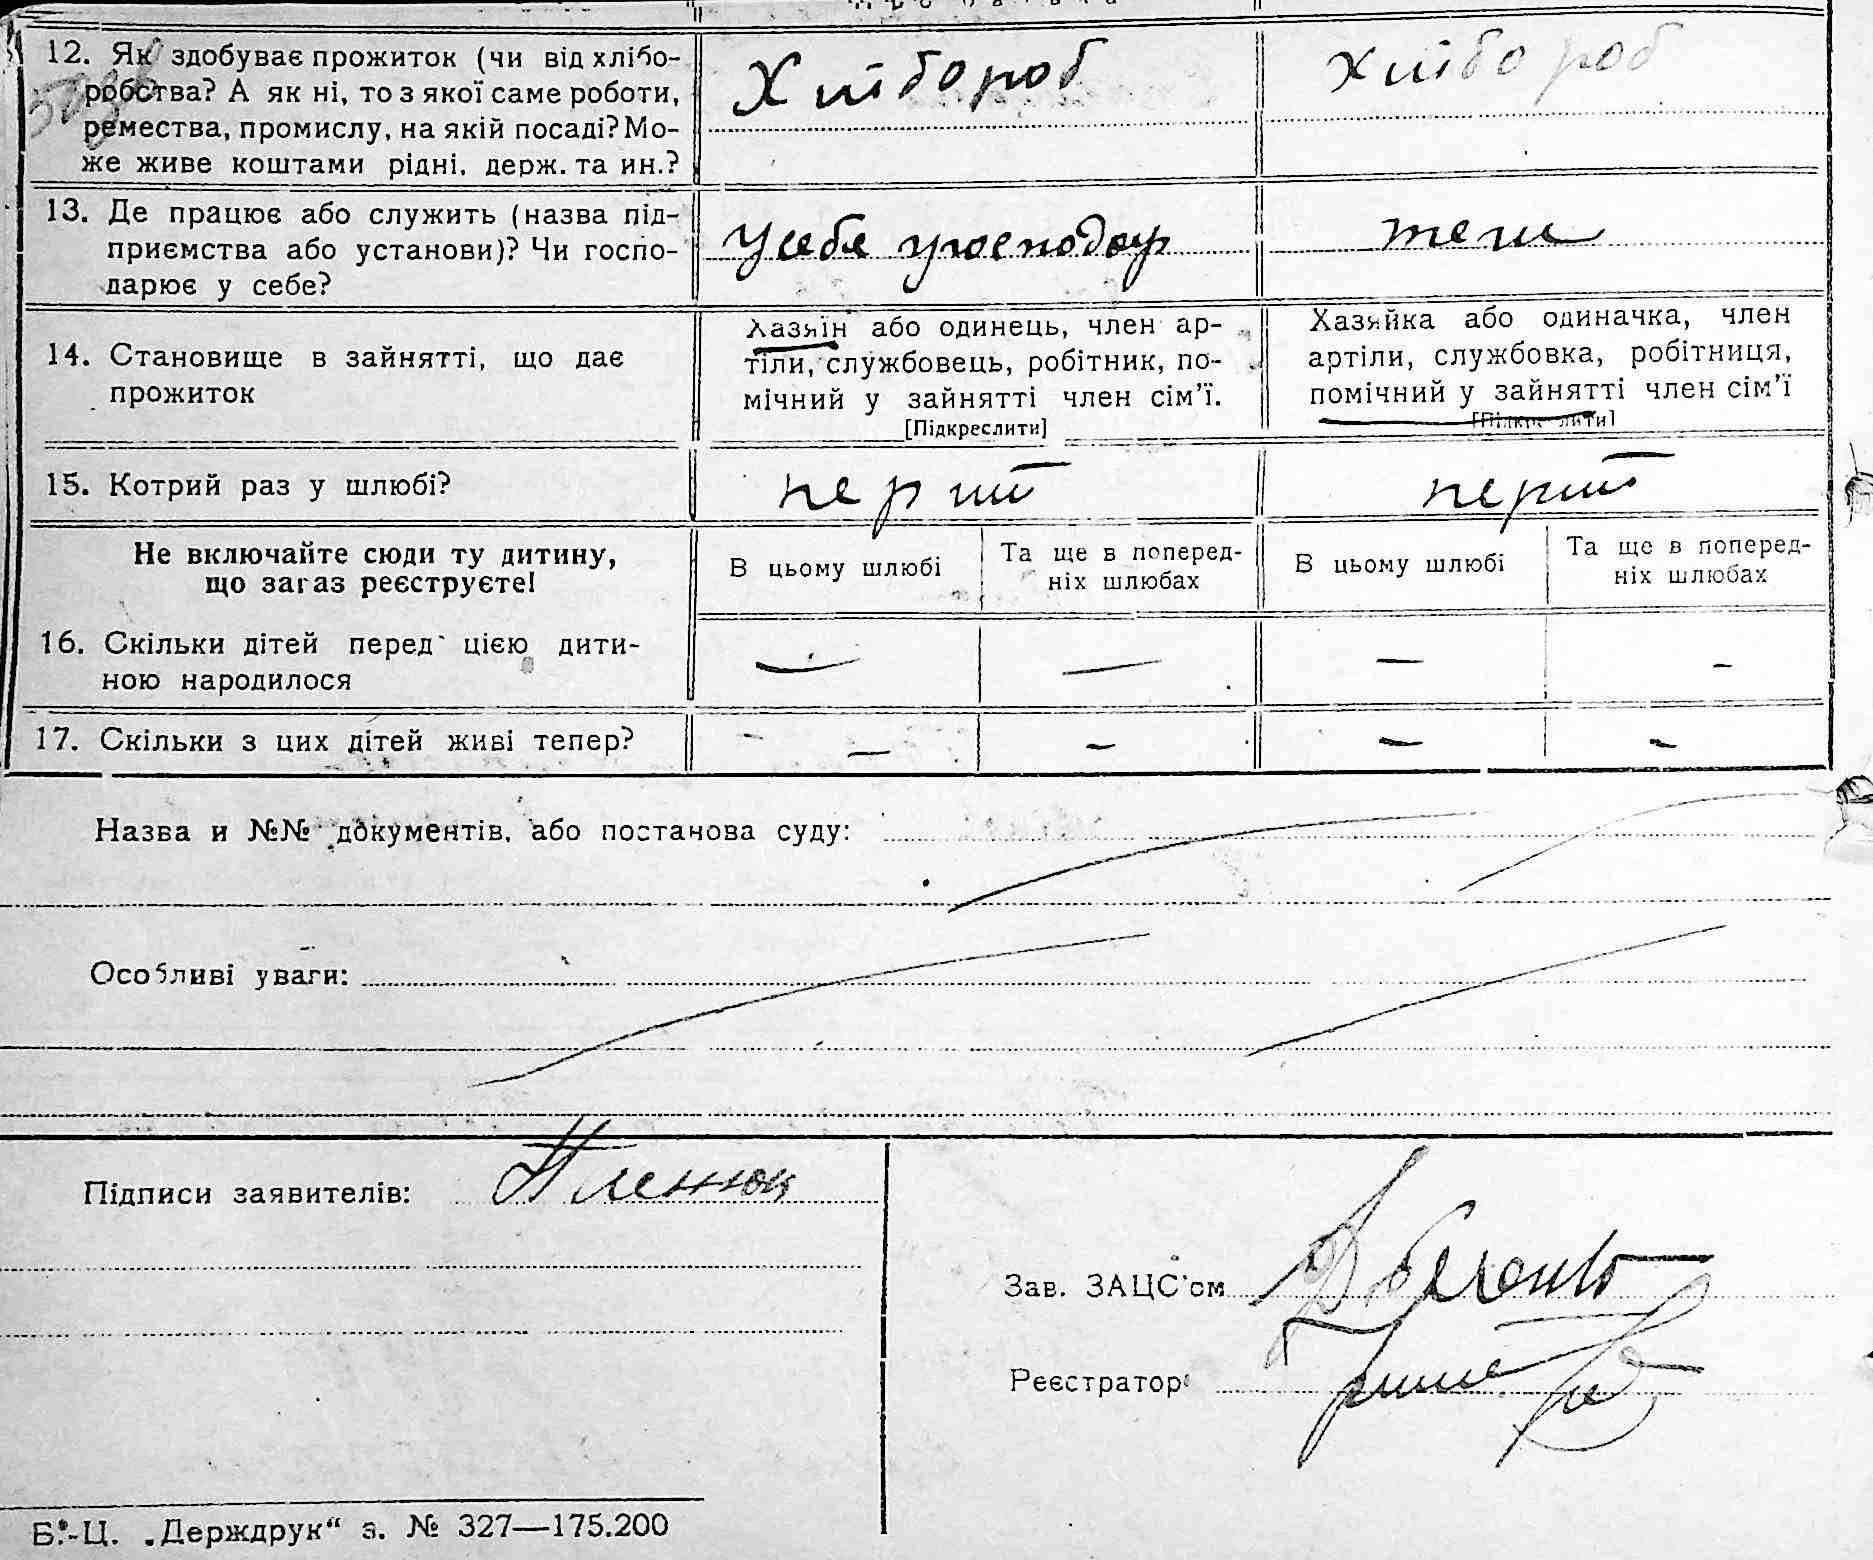 12. Як здобуває прожиток (чи від хлібо-
робства? А як ні, то з якої саме роботи,
ремества, промислу, на якій посаді? Мо-
же живе коштами рідні, держ. та ин.?
Хлібороб
Хлібороб
13. Де працює або служить (назва під-
приємства або установи)? Чи госпо-
дарює у себе?
У себе у господар
теж
14. Становище в зайнятті, що дає
прожиток
Хазяїн або одинець, член ар-
тіли, службовець, робітник, по-
мічний у зайнятті член сім'ї.
[Підкреслити]
Хазяйка або одиначка, член
артіли, службовка, робітниця,
помічний у зайнятті член сім'ї
[Підкреслити]
15. Котрий раз у шлюбі?
перший
перший
Не включайте сюди ту дитину,
що зараз реєструєте!
В цьому шлюбі
Та ще в поперед-
ніх шлюбах
В цьому шлюбі
Та ще в поперед-
ніх шлюбах
16. Скільки дітей перед цією дити-
ною народилося
— — — -
17. Скільки з цих дітей живі тепер?
— - — -
Назва и №№ документів, або постанова суду:
Особливі уваги:
Підписи заявителів:
Зав. ЗАЦС'ом
Реєстратор
Б.-Ц. „Держдрук“ з. № 327—175.200